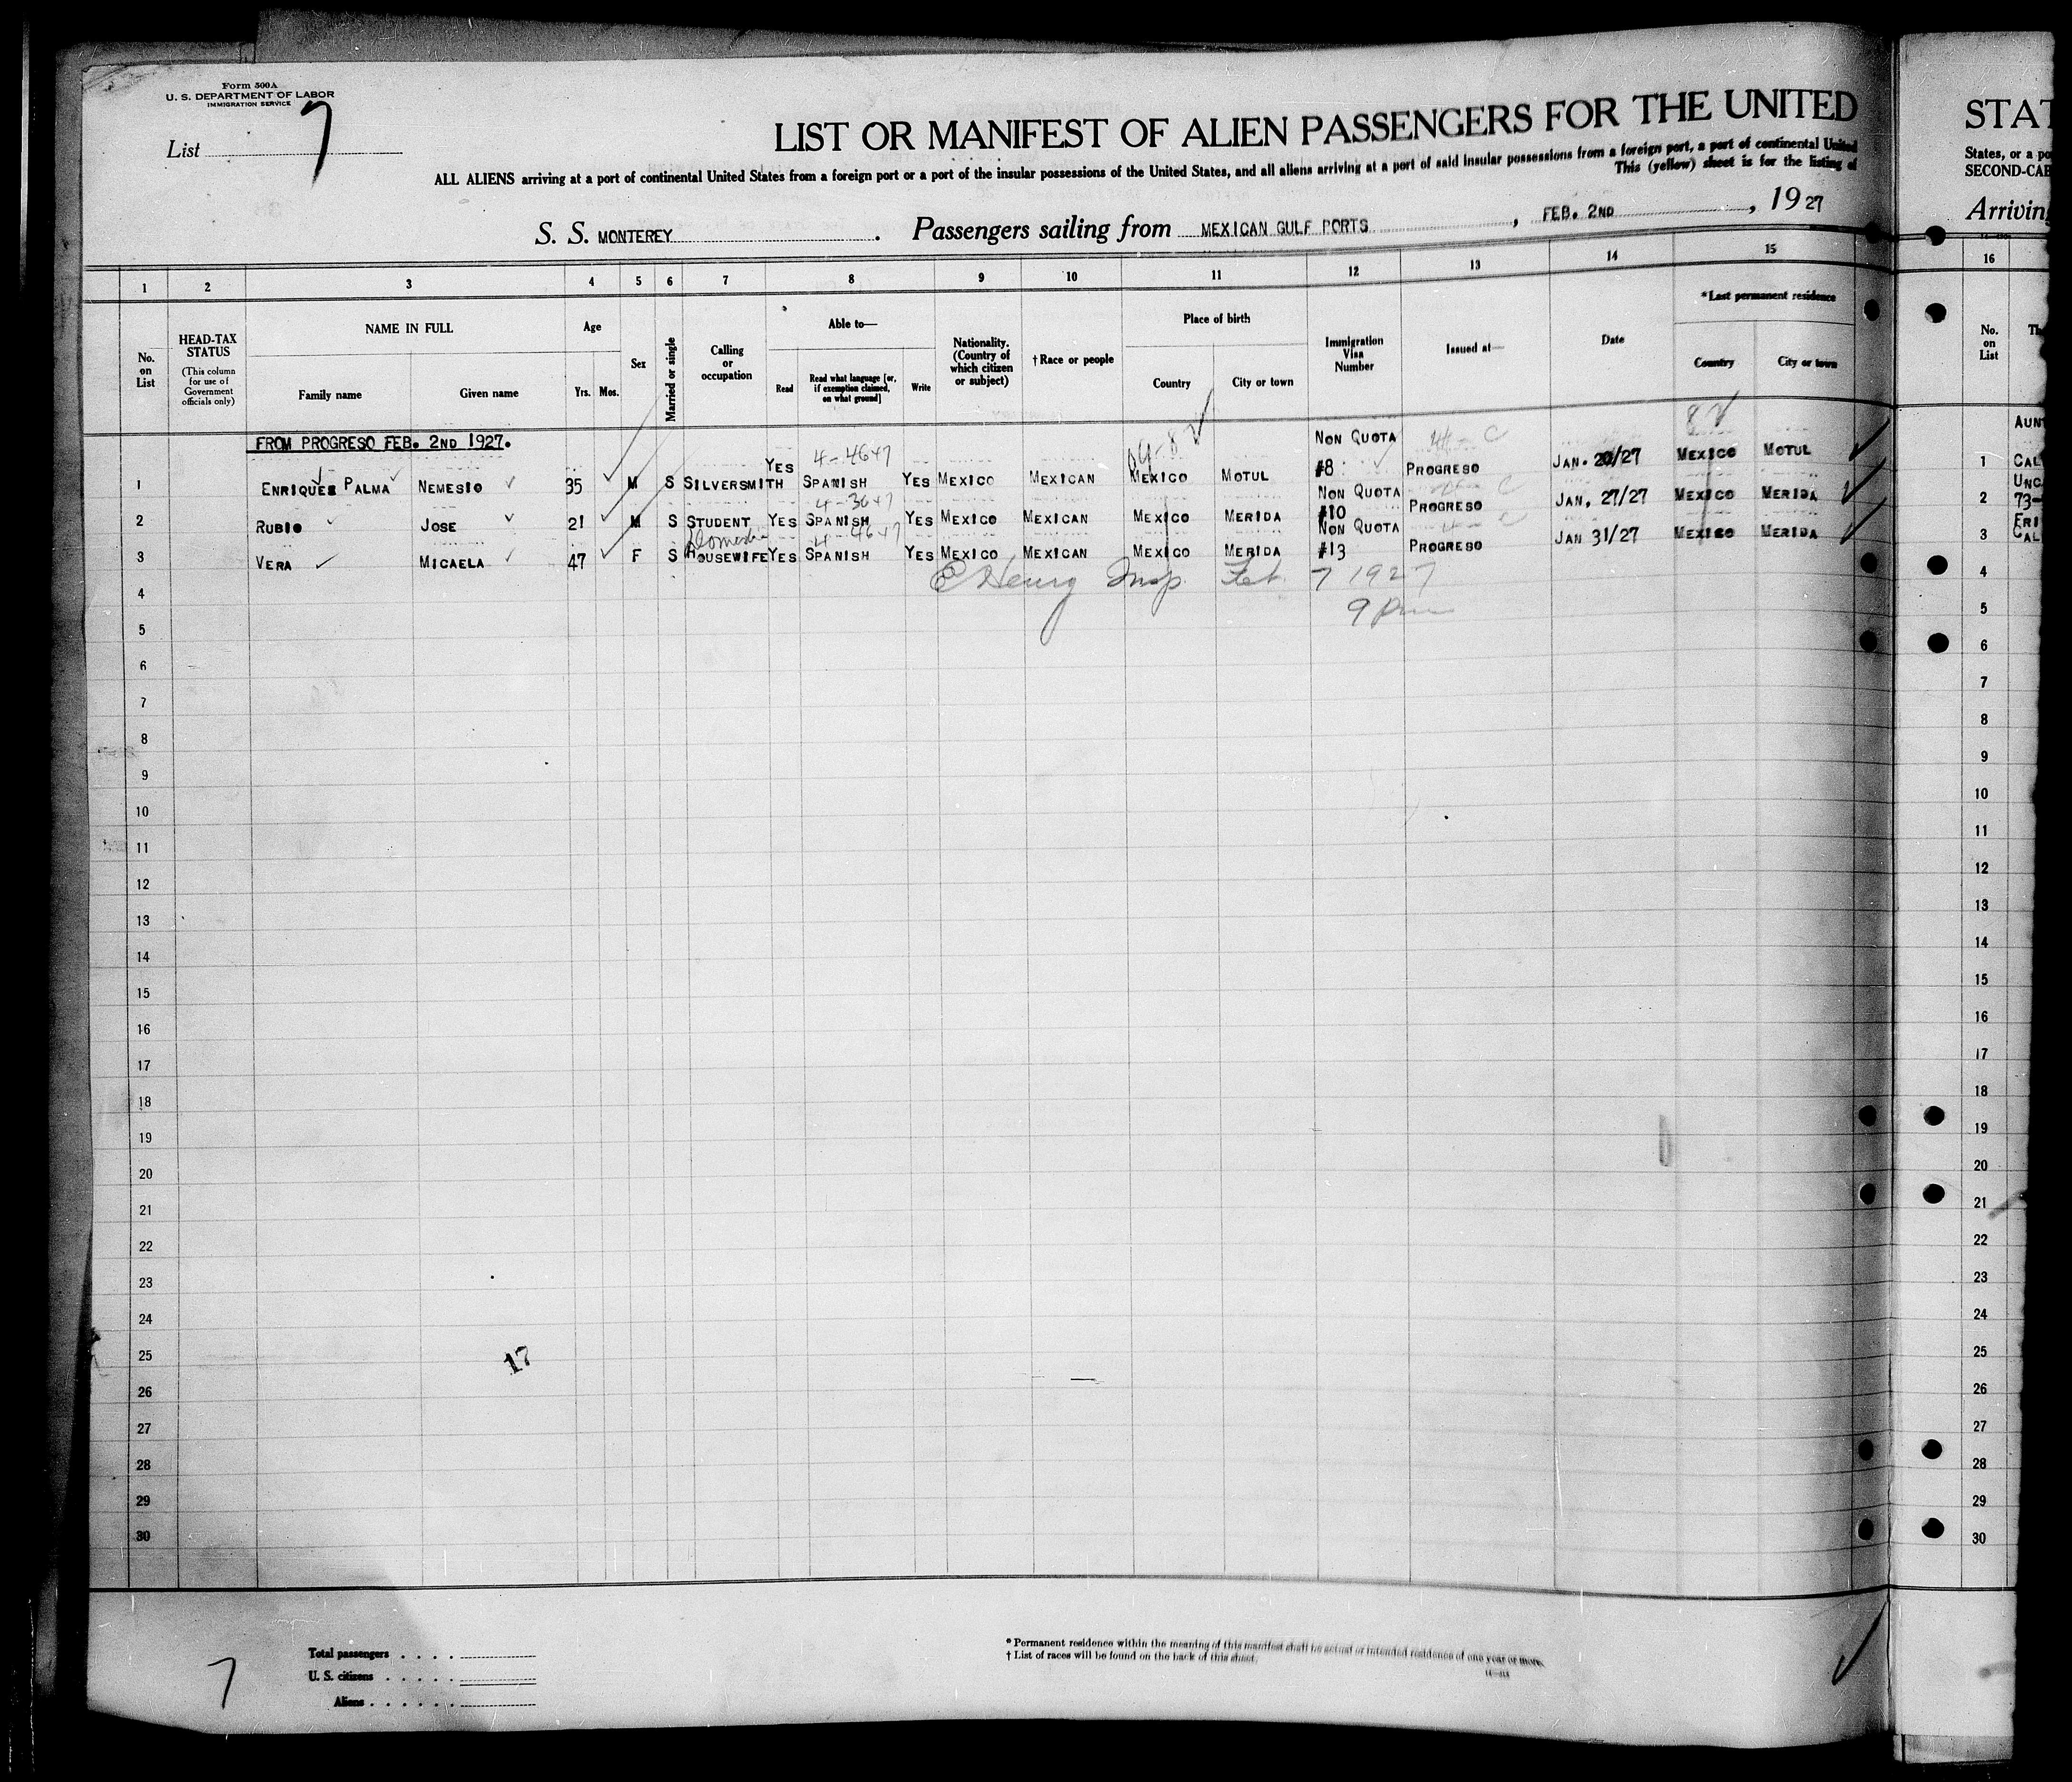 Form 500A
U. S. DEPARTMENT OF LABOR
IMMIGRATION SERVICE
List 7
LIST OR MANIFEST OF ALIEN PASSENGERS FOR THE UNITED
ALL ALIENS arriving at a port of continental United States from a foreign port or a part of the insular possessions of the United States, and all aliens arriving at a port of said insular possessions from a foreign port, a part of continental United
This (yellow) sheet is for the listing of
S. S. MONTEREY. Passengers sailing from MEXICAN GULF PORTS, FEB. 2ND, 1927
1 2 3 4 5 6 7 8 9 10 11 12 13 14 15
No. on List
HEAD-TAX STATUS
(This column for use of Government officials only)
NAME IN FULL
Family name Given name
Age
Yrs. Mos.
Sex
Married or single
Calling or occupation
Able to—
Read
Read what language [or, if exemption claimed, on what ground]
Write
Nationality. (Country of which citizen or subject)
† Race or people
Place of birth
Country City or town
Immigration Visa Number
Issued at—
Date
*Last permanent residence
Country City or town
FROM PROGRESO FEB. 2ND 1927.
1 ENRIQUEZ PALMA NEMESIO 35 M S SILVERSMITH YES SPANISH YES MEXICO MEXICAN MEXICO MOTUL NON QUOTA #8 PROGRESO JAN. /27 MEXICO MOTUL
2 RUBIO JOSE 21 M S STUDENT YES SPANISH YES MEXICO MEXICAN MEXICO MERIDA NON QUOTA #10 PROGRESO JAN, 27/27 MEXICO MERIDA
Domestic
3 VERA MICAELA 47 F S HOUSEWIFE YES SPANISH YES MEXICO MEXICAN MEXICO MERIDA NON QUOTA #13 PROGRESO JAN 31/27 MEXICO MERIDA
Henry Insp. Feb. 7 1927
9 pm
4
5
6
7
8
9
10
11
12
13
14
15
16
17
18
19
20
21
22
23
24
25
17
26
27
28
29
30
7
Total passengers
U. S. citizens
Aliens
* Permanent residence within the meaning of this manifest shall be actual or intended residence of one year or more.
† List of races will be found on the back of this sheet.
STAT
States, or a po
SECOND-CAB
Arriving
16
No. on List
AUN
1 CAL
UNC
2 73-
FRI
3 CAL
4
5
6
7
8
9
10
11
12
13
14
15
16
17
18
19
20
21
22
23
24
25
26
27
28
29
30